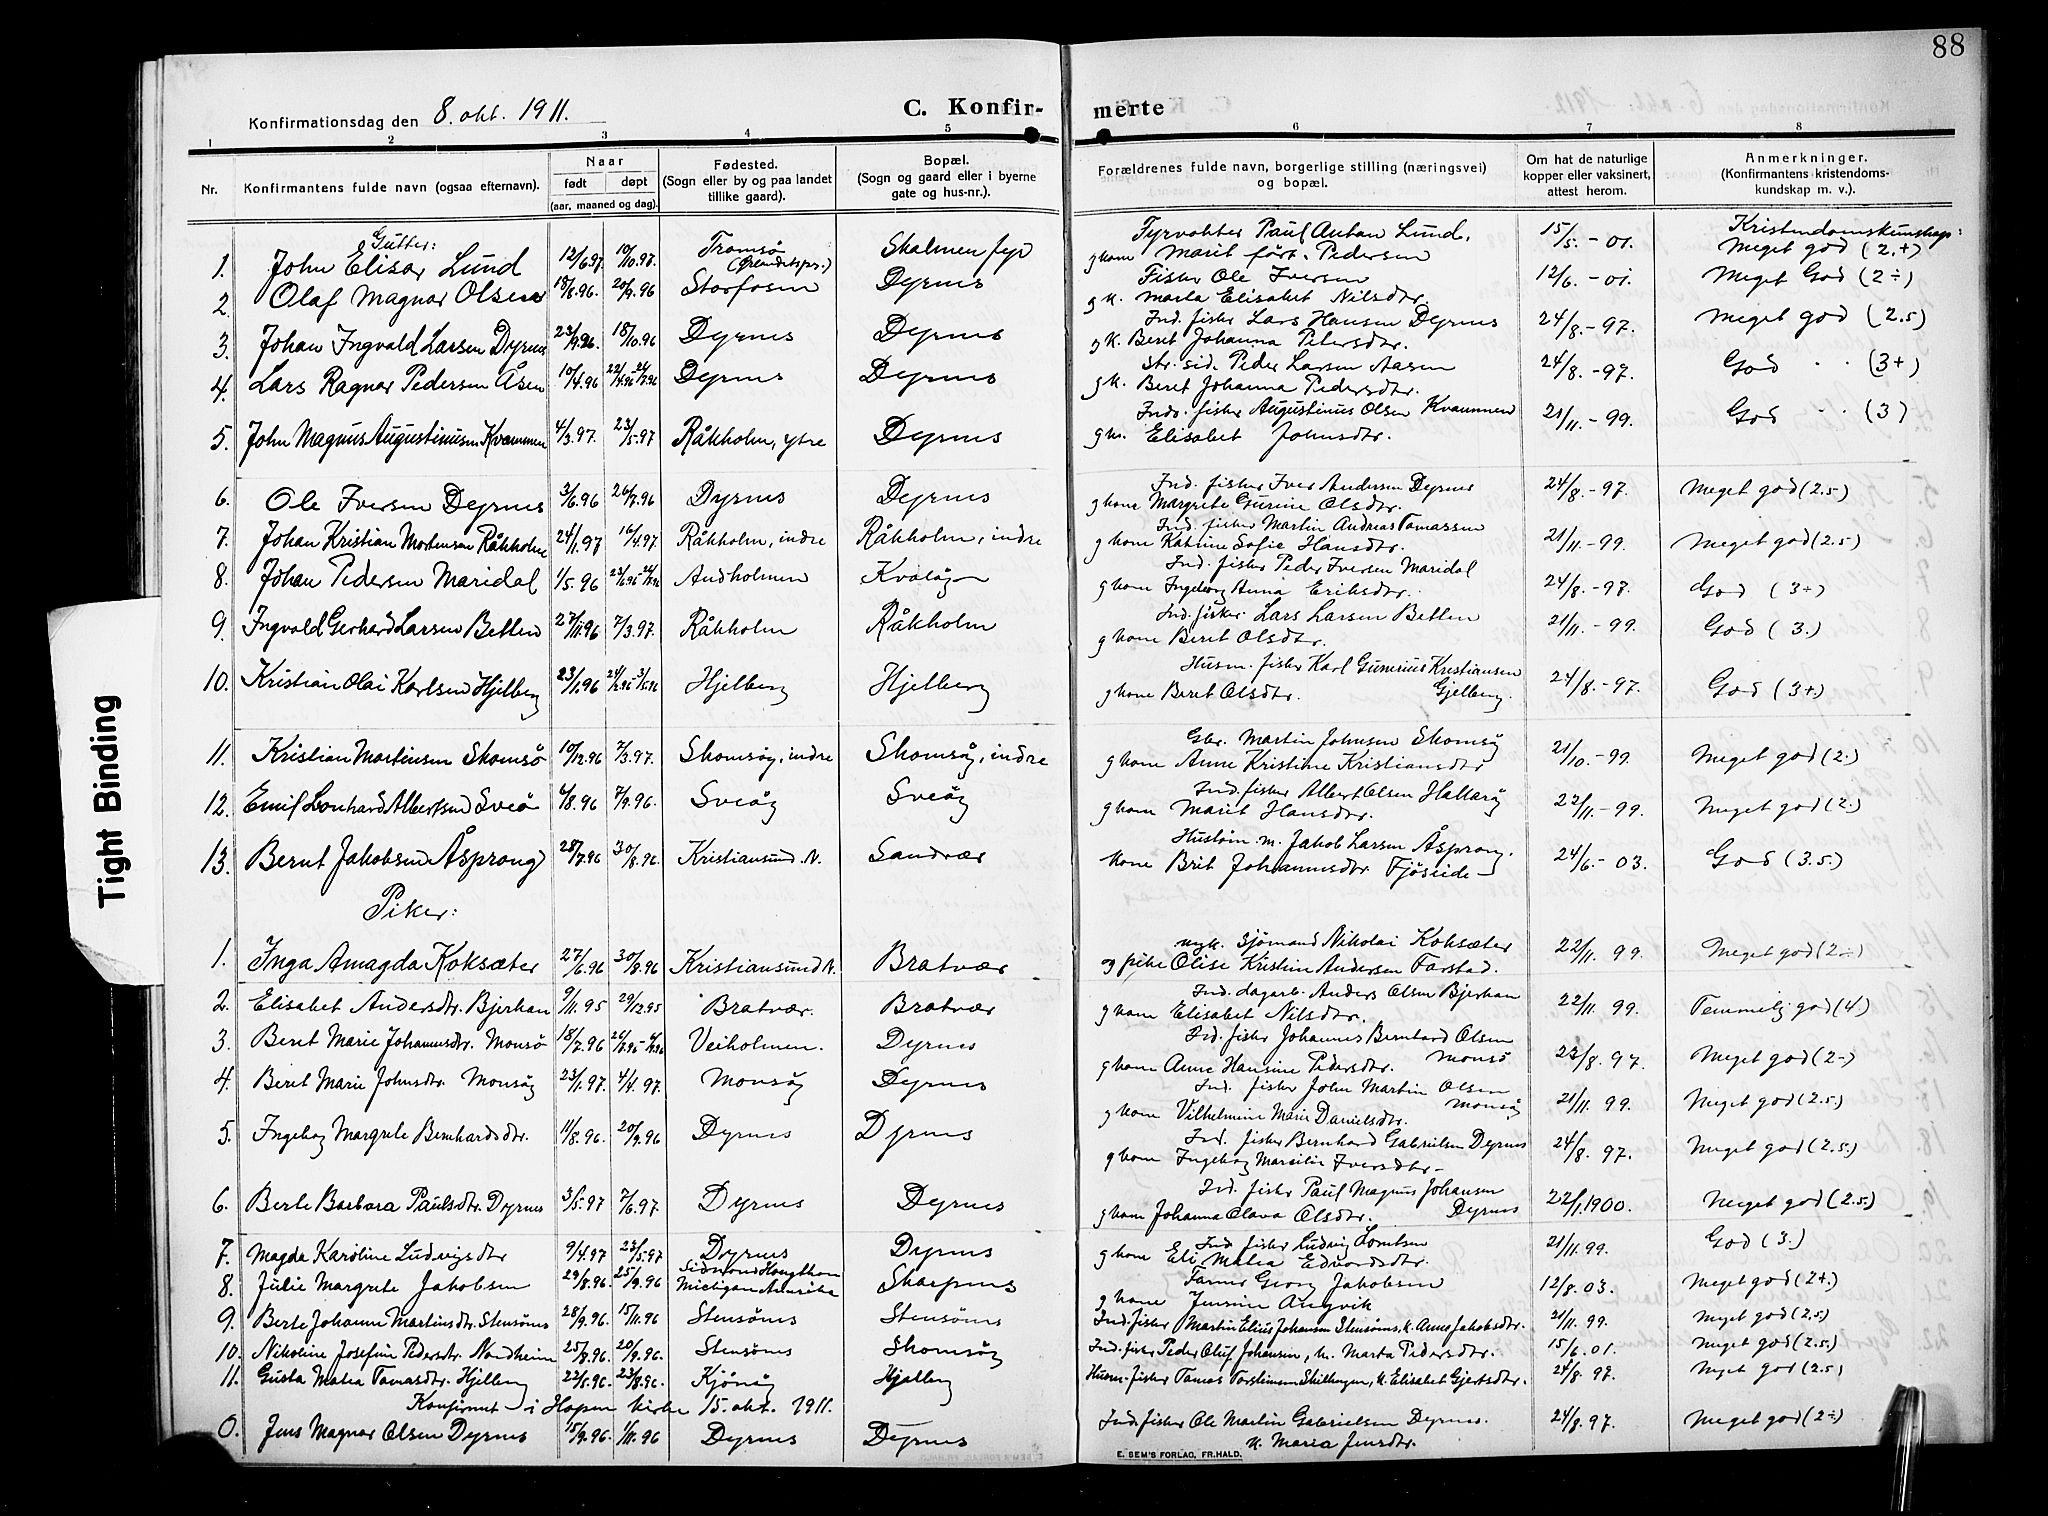 88
Konfirmationsdag den 8. okt. 1911.
C. Konfir-
merte
1 2 3 4 5 6 7 8
Nr.
Konfirmantens fulde navn (ogsaa efternavn).
Naar
født døpt
(aar, maaned og dag).
Fødested.
(Sogn eller by og paa landet
tillike gaard).
Bopæl.
(Sogn og gaard eller i byerne
gate og hus-nr.).
Forældrenes fulde navn, borgerlige stilling (næringsvei)
og bopæl.
Om hat de naturlige
kopper eller vaksinert,
attest herom.
Anmerkninger.
(Konfirmantens kristendoms-
kundskap m. v.).
Gutter:
Kristendomskunskap:
1. John Elisar Lund 12/6.97. 10/10.97. Tromsö Skalmen fyr Fyrvokter Paul Anton Lund, 15/5.-01. Meget god (2.+)
g kone Marit födt Pedersen
2. Olaf Magnar Olsen 18/8.96. 20/9.96 Storfosen Dyrnes Fisker Ole Iversen 12/6.-01. Meget God (2÷)
g k. Marta Elisabet Nilsdtr.
3. Johan Ingvald Larsen Dyrnes 23/9.96. 18/10.96 Dyrnes Dyrnes Ind. fisker Lars Hansen Dyrnes 24/8.-97. Meget god (2.5)
g k. Beret Johanna Petersdtr.
4. Lars Ragnar Pedersen Åsen 10/4.96 Dyrnes Dyrnes Str. sid. Peder Larsen Aasen 24/8.-97. God (3+)
g k. Beret Johanna Pedersdtr.
5. John Magnus Augustinusen Kvammen 4/3.97. 23/5.97 Råkholm, ytre Dyrnes Inds. fisker Augustinus Olsen Kvammen 21/11.-99. God (3)
g k. Elisabet Johnsdtr.
6. Ole Iversen Dyrnes 3/6.96 26/7.96 Dyrnes Dyrnes Ind. fisker Iver Andersen Dyrnes 24/8.-97. Meget god (2.5)
g kone Margrete Gurine Olsdtr.
7. Johan Kristian Mortensen Råkholm 24/1.97 16/4.97. Råkholm, indre Råkholm, indre Ind. fisker Martin Andreas Tomassen 21/11.-99. Meget god (2.5)
g kone Katrine Sofie Hansdtr.
8. Johan Pedersen Maridal 1/5.96 Andholmen Kvaløy Ind. fisker Peder Iversen Maridal 24/8.-97. God (3+)
g kone Ingeborg Anna Eriksdtr.
9. Ingvald Gerhard Larsen Betten 27/11.96 7/3.97. Råkholm Råkholm Ind. fisker Lars Larsen Betten 21/11.-99. God (3.)
g kone Beret Olsdtr.
10. Kristian Olai Karlsen Hjelberg 23/1.96 Hjelberg Hjelberg Husm. fisker Karl Gunerius Kristiansen 24/8.-97. God (3+)
g kone Beret Olsdtr. Gjelberg.
11. Kristian Martinsen Skomsö 10/12.96 7/3.97. Skomsöy, indre Skomsöy, indre Gbr. Martin Johnsen Skomsöy 21/10.-99. Meget god (2.)
g kone Anne Kristine Kristiansdtr
12. Emil Leonhard Albertsen Sveö 4/8.96 7/9.96. Sveöy Sveöy Ind. fisker Albert Olsen Hallaröy 22/11.-99. Meget god (2.)
g kone Marit Hansdtr.
13. Bernt Jakobsen Åsprong 28/7.96 30/8.96. Kristiansund. N. Sandvær Hustöm. m. Jakob Larsen Åsprong. 24/6.-03. God (3.5.)
kone Brit Johannesdtr. Fjöseide
Piker:
1. Inga Amagda Koksæter 27/6.96 30/8.96 Kristiansund N. Bratvær ungk. sjömand Nikolai Koksæter 22/11.99. Meget god (2÷)
og pike Olise Kristine Andersen Farstad.
2. Elisabet Andersdtr. Bjerkan 9/11.95 29/12.95 Bratvær. Bratvær Ind. dagarb. Anders Olsen Bjerkan 22/11.99. Temmelig god (4.)
g kone Elisabet Nilsdtr.
3. Beret Marie Johannesdtr. Monsö 18/7.96 Veiholmen. Dyrnes Ind. fisker Johannes Bernhard Olsen 23/8.97. Meget god (2-)
g kone Anne Hansine Pedersdtr. Monsö
4. Beret Marie Johnsdtr. Monsöy 23/1.97. 4/4.97. Monsöy Dyrnes Ind. fisker John Martin Olsen 21/11.99. Meget god (2.5.)
g kone Vilhelmine Marie Danielsdtr. Monsöy
5. Ingeborg Margrete Bernhardsdtr. 11/8.96. 20/9.96 Dyrnes Dyrnes Ind. fisker Bernhard Gabrielsen Dyrnes 24/8.97. Meget god (2.5.)
g kone Ingeborg Marsilie Iversdtr.
6. Berte Barbara Paulsdtr. Dyrnes 3/5.97 7/6.97. Dyrnes Dyrnes Ind. fisker Paul Magnus Johansen 22/1.1900. Meget god (2.5.)
g kone Johanna Olava Olsdtr. Dyrnes
7. Magda Karoline Ludvigsdtr 9/4.97 23/5.97 Dyrnes Dyrnes Ind. fisker Ludvig 21/11.99. God (3.)
g kone Eli Matea Edvardsdtr.
8. Julie Margrete Jakobsen 29/8.96. 25/9.96 Michigan Amerika Skarpnes Georg Jakobsen 12/8.03. Meget god (2+.)
g kone Jensine Angvik
9. Berte Johanne Martinsdtr. Stensönes 28/9.96. 15/11.96 Stensönes Stensönes Ind. fisker Martin Elius Johansen Stensönes, k. Anne Jakobsdtr. 21/11.99. Meget god (2,5.)
10. Nikoline Josefine Pedersdtr. Nordheim 25/8.96. 20/9.96. Stensönes Skomsöy Ind. fisker Peder Oluf Johansen, k. Marta Pedersdtr. 15/6.01. Meget god (2.5.)
11. Gusta Matea Tomasdtr. Hjelberg 22/5.96. 23/8.96. Kjönsöy Hjelberg Husm. fisker Tomas Torstensen Skillingen, k. Elisabet Gjertsdtr. 24/8.97. Meget god (2.5)
Konfirmert i Hopen kirke 15. okt. 1911.
0. Jens Magnar Olsen Dyrnes 15/9.96. 1/11.96 Dyrnes Dyrnes Ind. fisker Ole Martin Gabrielsen Dyrnes. 24/8.97. Meget god (2÷)
k. Maria Jensdtr.
E. SEM'S FORLAG, FR.HALD.
Tight Binding